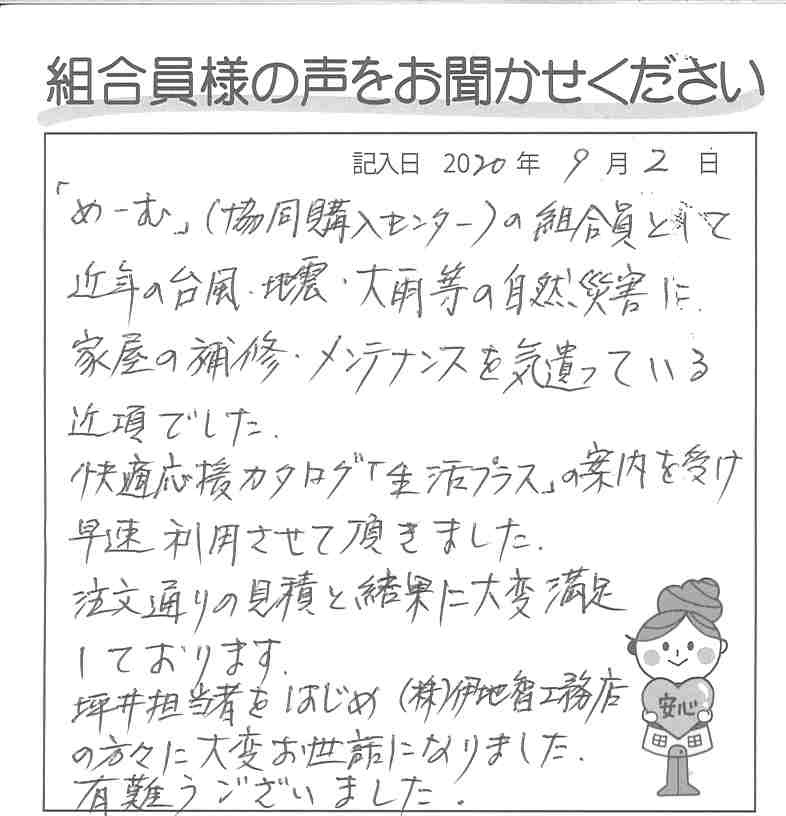 組合員様の声をお聞かせください
記入日 2020年 9月 2日
「めーむ」(協同購入センター)の組合員として
近年の台風・地震・大雨等の自然災害に、
家屋の補修・メンテナンスを気遣っている
近項でした.
快適応援カタログ「生活プラス」の案内を受け
早速利用させて頂きました.
注文通りの見積と結果に大変満足
しております.
坪井担当者をはじめ(株)伊地智工務店
の方々に大変お世話になりました.
有難うございました.
安心